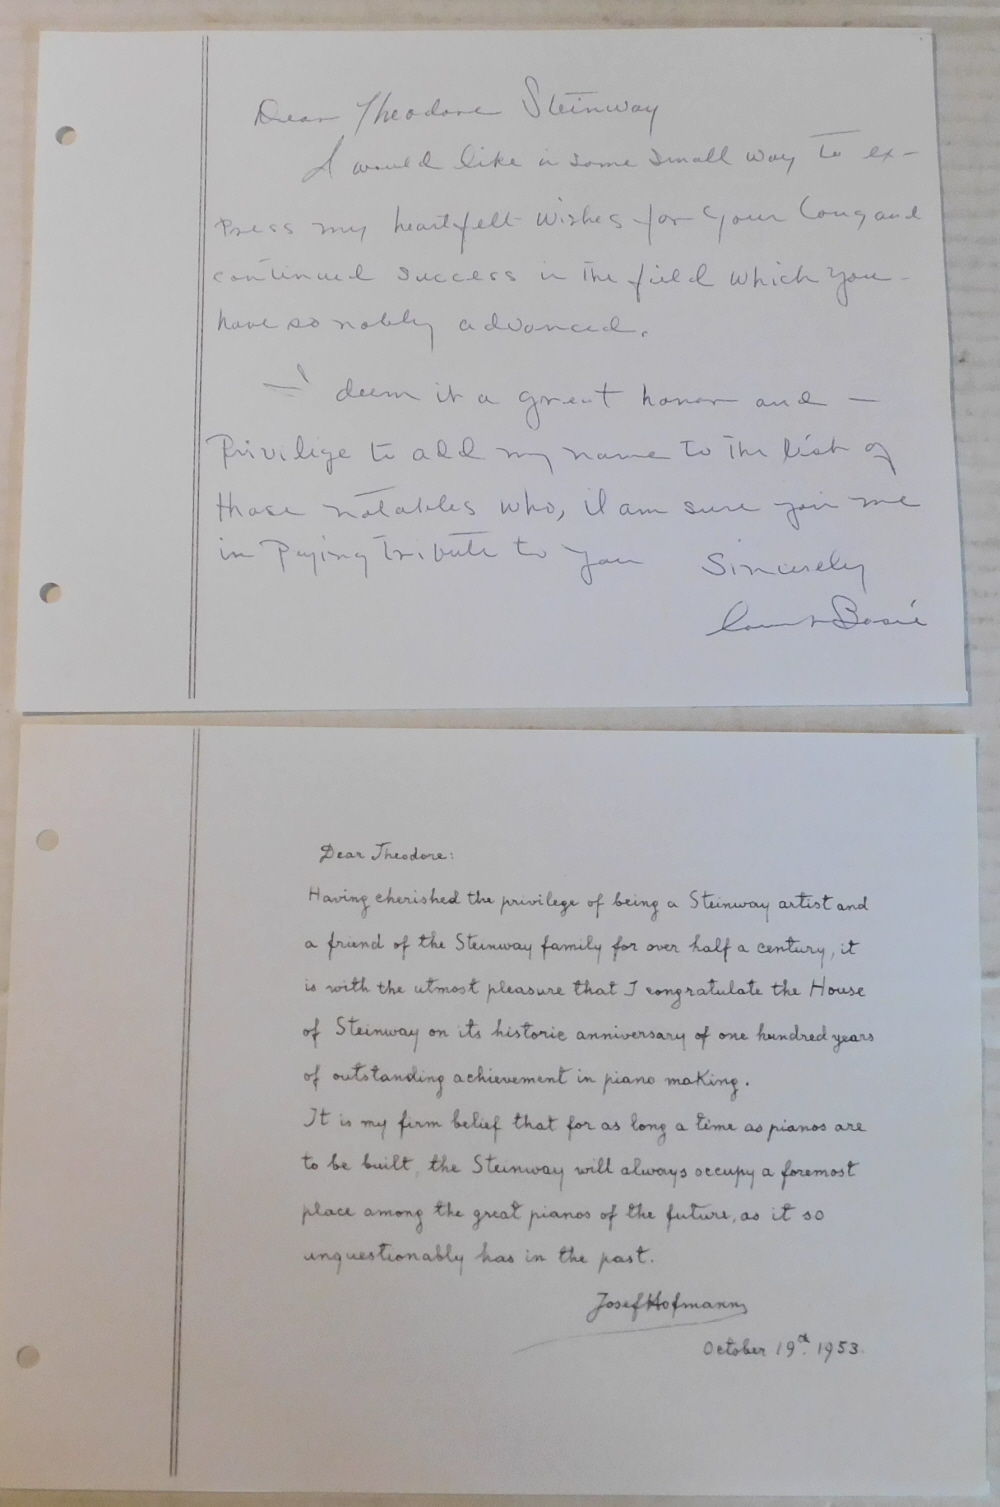 Dear Theodore Steinway
I would like in some small way to ex-
press my heartfelt wishes for your long and
continued success in the field which you -
have so nobly advanced.
I deem it a great honor and -
Privilige to add my name to the list of
those notables who, I am sure join me
in Paying tribute to you Sincerely
Count Basie
Dear Theodore:
Having cherished the privilege of being a Steinway artist and
a friend of the Steinway family for over half a century, it
is with the utmost pleasure that I congratulate the House
of Steinway on its historic anniversary of one hundred years
of outstanding achievement in piano making.
It is my firm belief that for as long a time as pianos are
to be built, the Steinway will always occupy a foremost
place among the great pianos of the future, as it so
unquestionably has in the past.
Josef Hofmann
October 19th. 1953